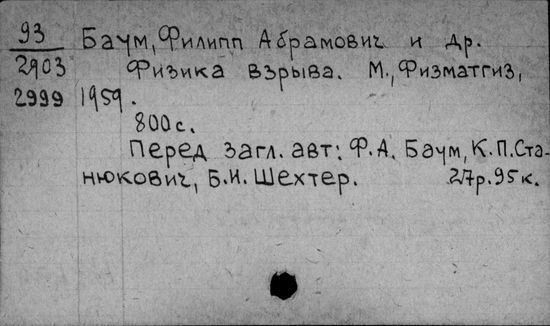 93 Баум, Филипп Абрамович и др.
2903 Физика взрыва. М., Физматгиз,
2999 1959.
800 с.
Перед загл. авт: Ф.А. Баум, К.П.Ста-
нюкович, Б.И. Шехтер. 27р.95к.